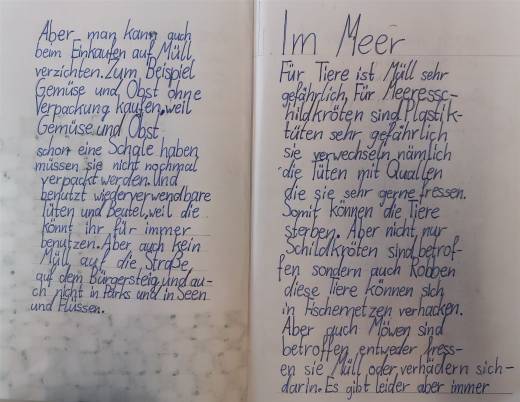 Aber man kann auch
beim Einkaufen auf Müll
verzichten. Zum Beispiel
Gemüse und Obst ohne
Verpackung kaufen, weil
Gemüse und Obst
schon eine Schale haben
müssen sie nicht nochmal
verpackt werden. Und
benutzt wiederverwendbare
Tüten und Beutel, weil die
könnt ihr für immer
benutzen. Aber auch kein
Müll auf die Straße
auf dem Bürgersteig und au-
ch nicht in Parks und in Seen
und Flüssen.
Im Meer
Für Tiere ist Müll sehr
gefährlich. Für Meeressc-
hildkröten sind Plastik-
tüten sehr gefährlich
sie verwechseln nämlich
die Tüten mit Quallen
die sie sehr gerne fressen.
Somit können die Tiere
sterben. Aber nicht nur
Schildkröten sind betrof-
fen sondern auch Robben
diese Tiere können sich
in Fischernetzen verhacken.
Aber auch Möwen sind
betroffen entweder fress-
en sie Müll oder verhädern sich
darin. Es gibt leider aber immer